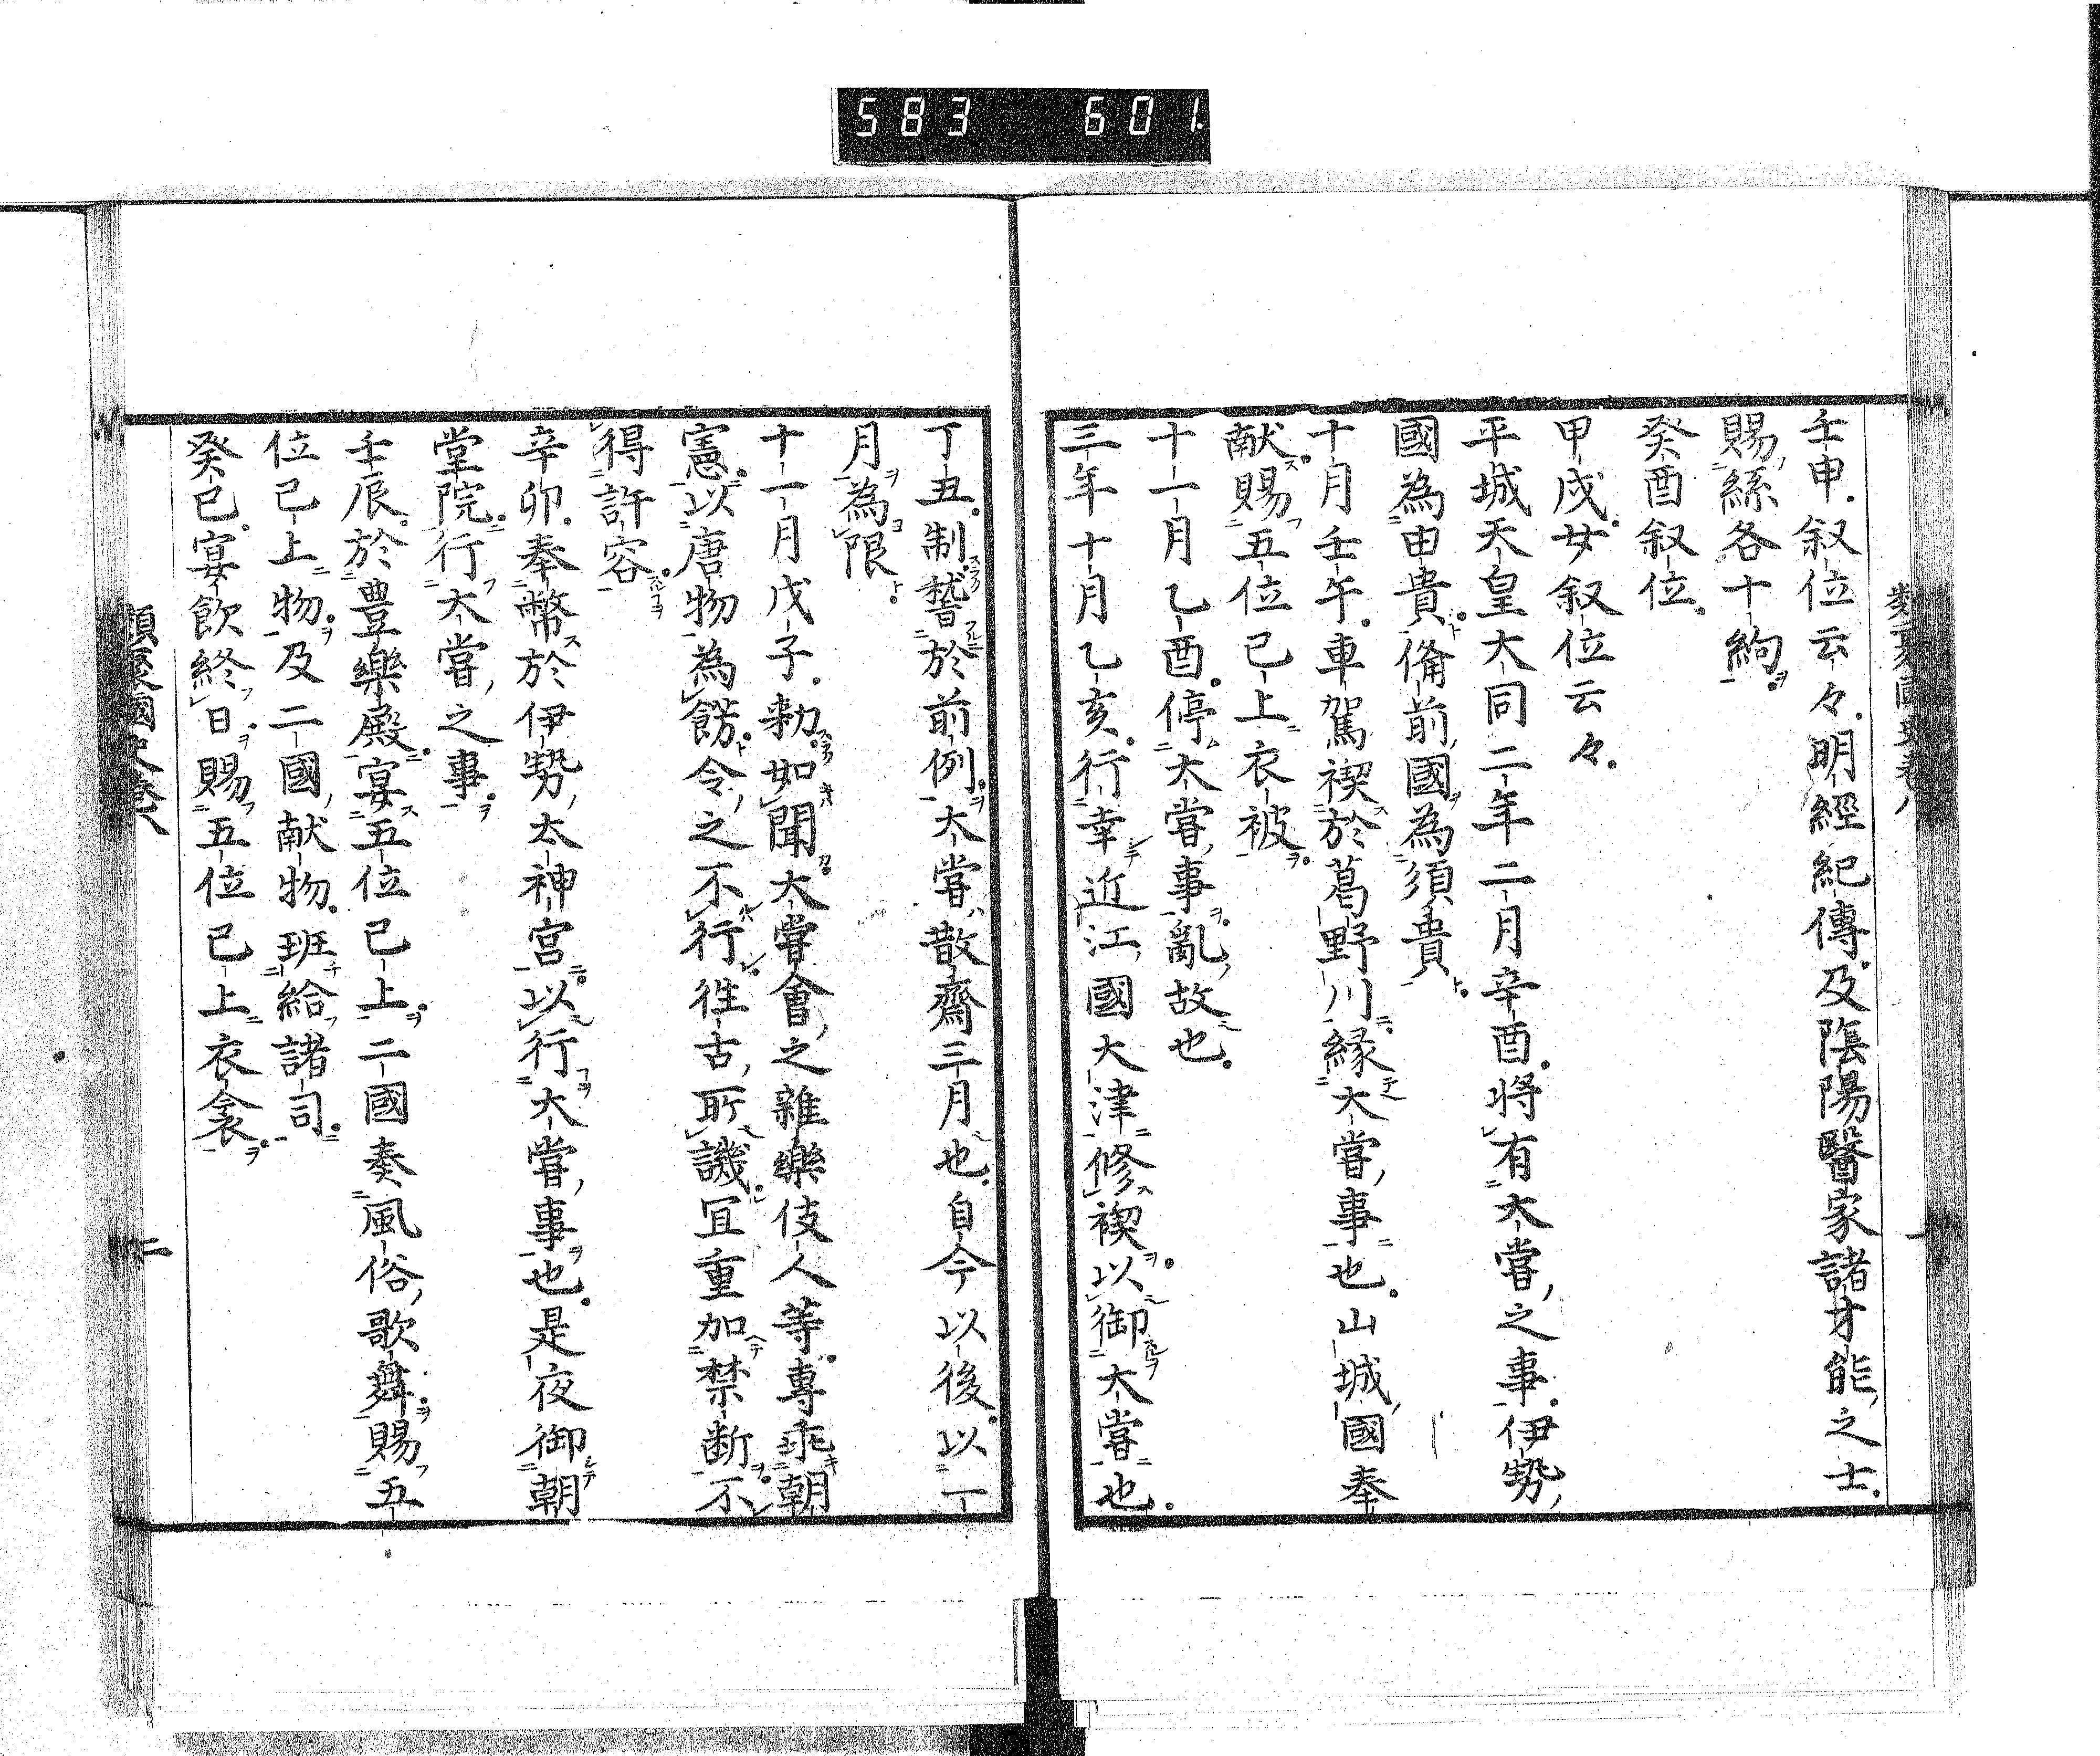 583 601
壬申叙位云々明經紀傳及陰陽醫家諸才能之士
賜絲各十絇
癸酉叙位
甲戌女叙位云々
平城天皇大同二年二月辛酉將有大嘗之事伊勢
國為由貴俻前國為須貴
十月壬午車駕禊於葛野川縁大嘗事也山城國奉
献賜五位已上衣被
十一月乙酉停大嘗事亂故也
三年十月乙亥行幸近江國大津修禊以御大嘗也
丁丑制稽於前例大嘗散齋三月也自今以後以一
月為限
十一月戊子勅如聞大嘗會之雜樂伎人等專乖朝
憲以唐物為餝令之不行徃古所譏冝重加禁断不
得許容
辛卯奉幣於伊勢太神宮以行大嘗事也是夜御朝
堂院行大嘗之事
壬辰於豊樂殿宴五位已上二國奏風俗歌舞賜五
位已上物及二國献物班給諸司
癸巳宴飲終日賜五位已上衣衾
類聚國史卷八
二